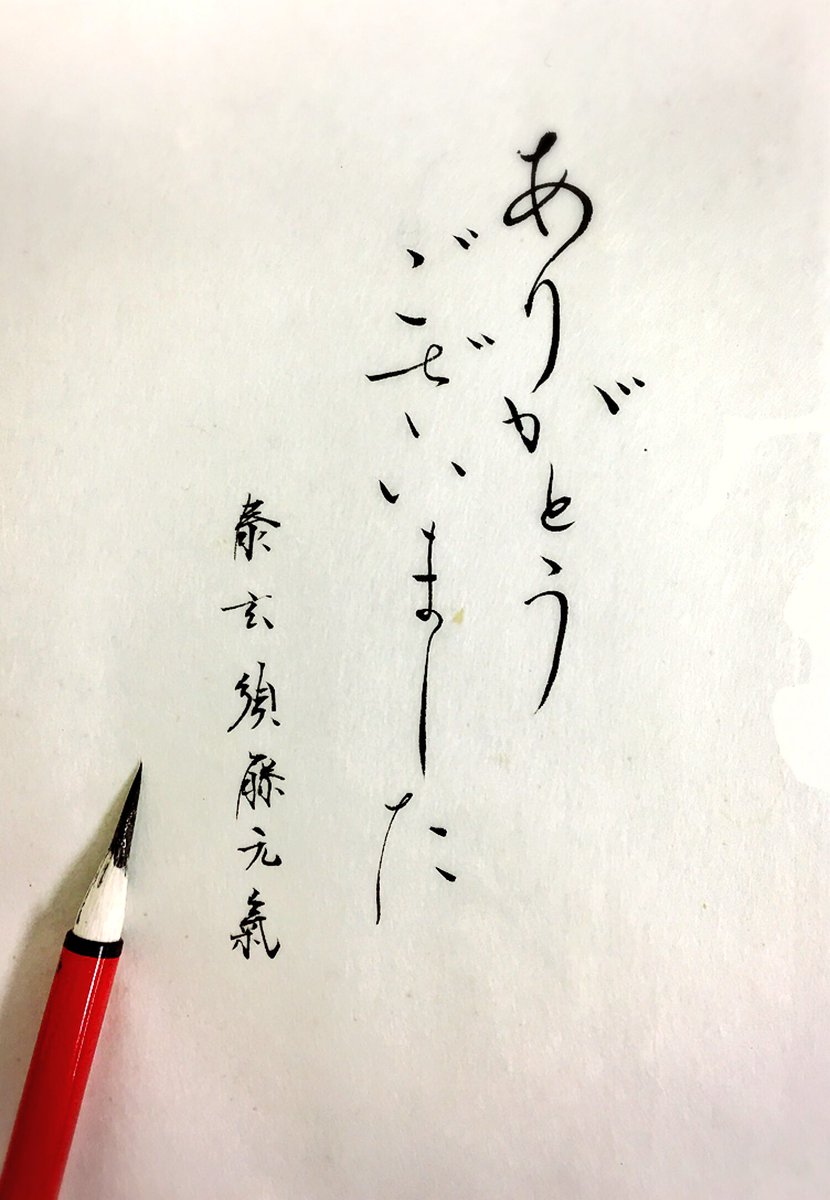 ありがとう
ございました
泰玄須藤元氣